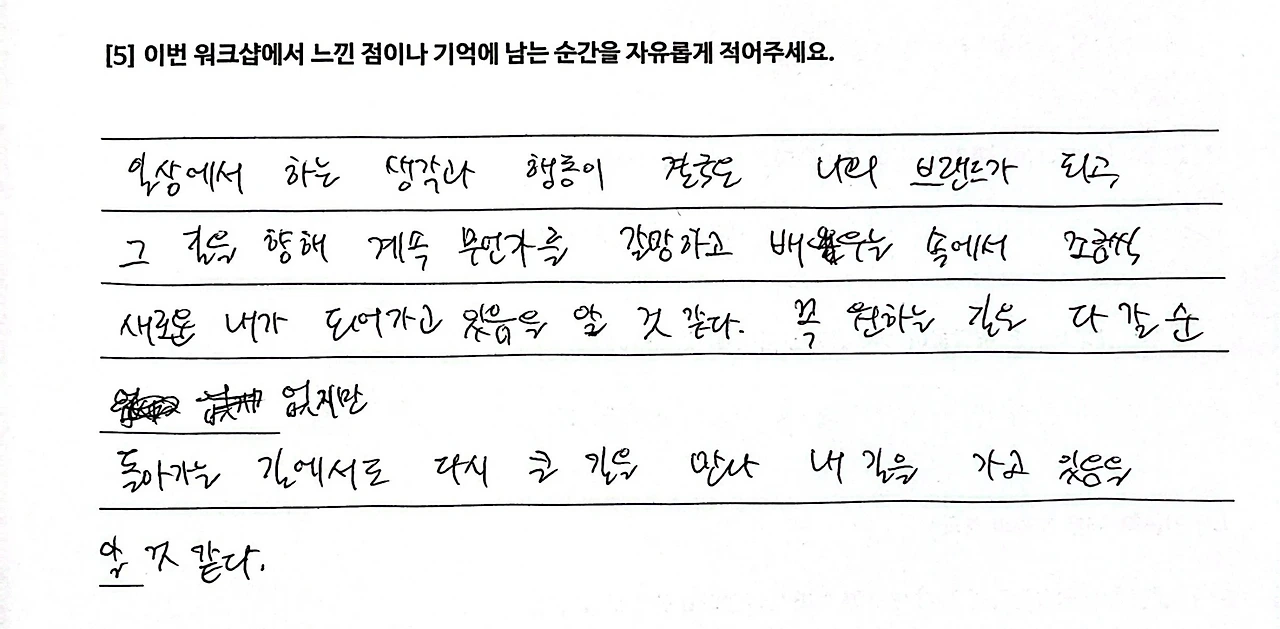 [5] 이번 워크샵에서 느낀 점이나 기억에 남는 순간을 자유롭게 적어주세요.
일상에서 하는 생각과 행동이 결국은 나의 브랜드가 되고,
그 길을 향해 계속 무언가를 갈망하고 배우는 속에서 조금씩
새로운 내가 되어가고 있음을 알 것 같다. 꼭 원하는 길은 다 갈 순
없지만
돌아가는 길에서도 다시 큰 길을 만나 내 길을 가고 있음을
알 것 같다.